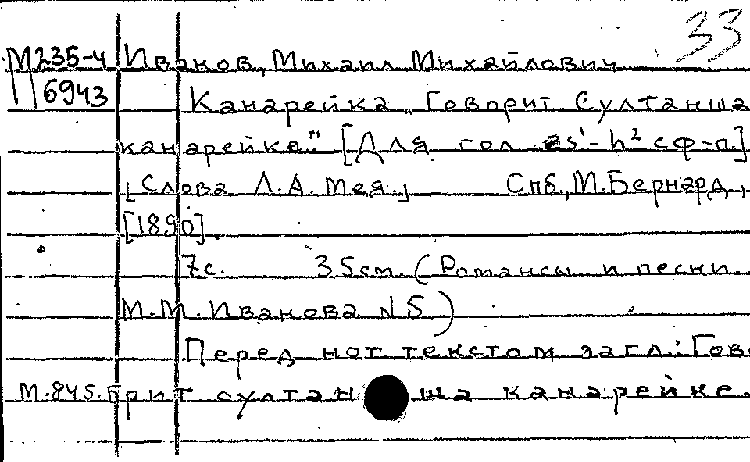 33
М235-4 Иванов, Михаил Михайлович
6943 Канарейка „Говорит Султанша
канарейке" [Для гол. es¹-h² с ф-п]
[Слова Л.А. Мея] Спб., М. Бернард,
[1890].
7с. 35см. (Романсы и песни
М.М. Иванова №5)
Перед нот. текстом загл.: Гово-
М.845. рит султанша канарейке.